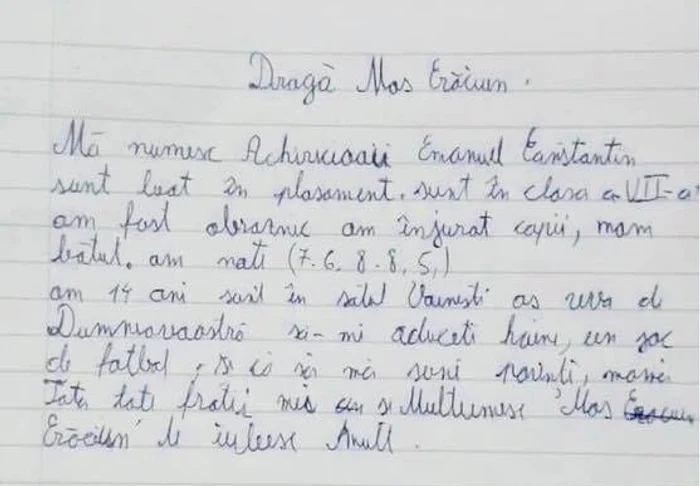 Dragă Mos Crăciun.
Mă numesc Achirucoaii Emanuel Constantin
sunt luat în plasament. sunt în clasa a VII-a
am fost obraznic am înjurat copii, mam
bătut. am nati (7.6, 8.8, 5,)
am 14 ani sunt în satul Vainesti as vrea d
Dumneavoastră sa-mi aduceti haine, un joc
d fotbal, și că să mă suni parinti, mama
Tata toti frati mei si Multumesc Mos
Crăciun Te iubesc